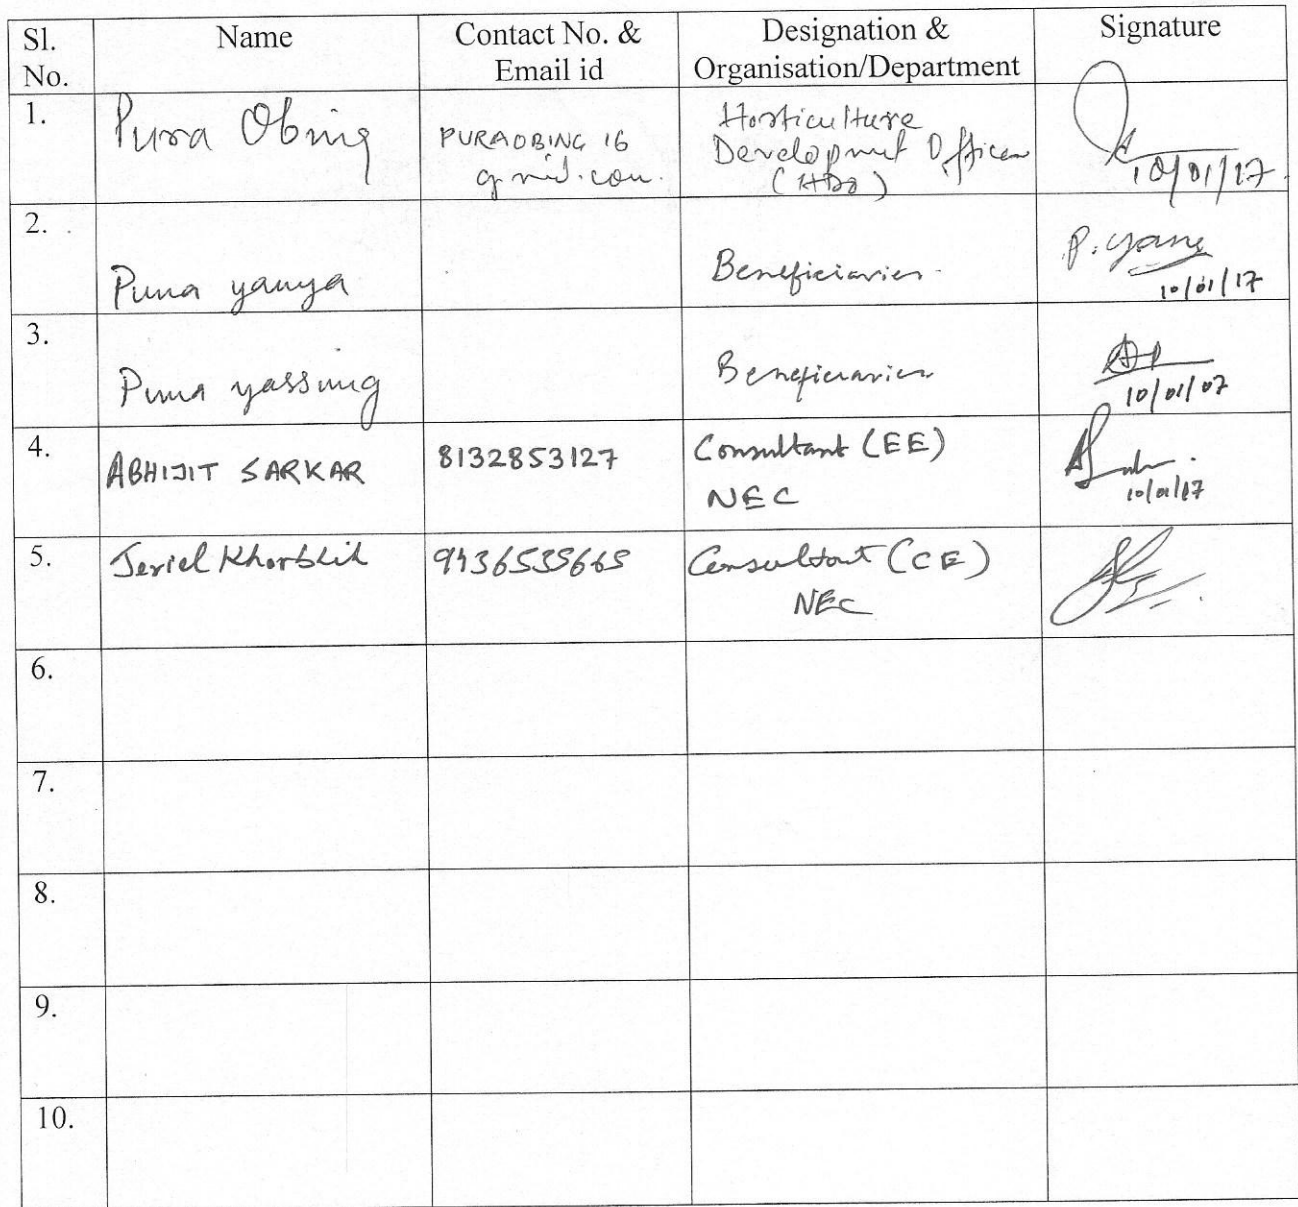 Sl. No.
Name
Contact No. & Email id
Designation & Organisation/Department
Signature
1.
Pura Obing
PURAOBING 16
gmail.com.
Horticulture
Development Officer
(HDO)
10/01/17.
2.
Puna yanya
Beneficiaries.
P. yang
10/01/17
3.
Puna yassung
Beneficiaries
10/01/07
4.
ABHIJIT SARKAR
8132853127
Consultant (EE)
NEC
10/01/17
5.
Jeriel Khorblih
9436535665
Consultant (CE)
NEC
6.
7.
8.
9.
10.